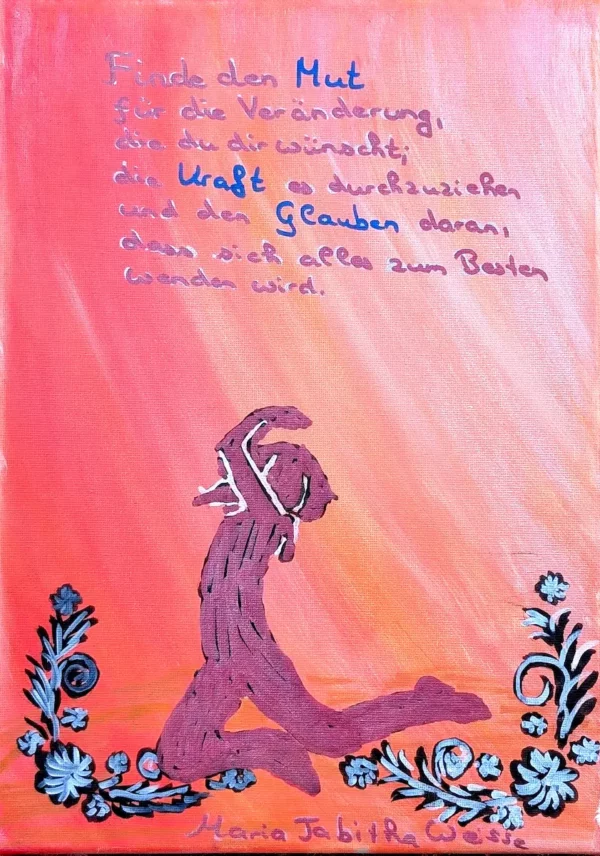 Finde den Mut
für die Veränderung,
die du dir wünscht;
die Kraft es durchzuziehen
und den Glauben daran,
dass sich alles zum Besten
wenden wird.
Maria Tabitha Weisse